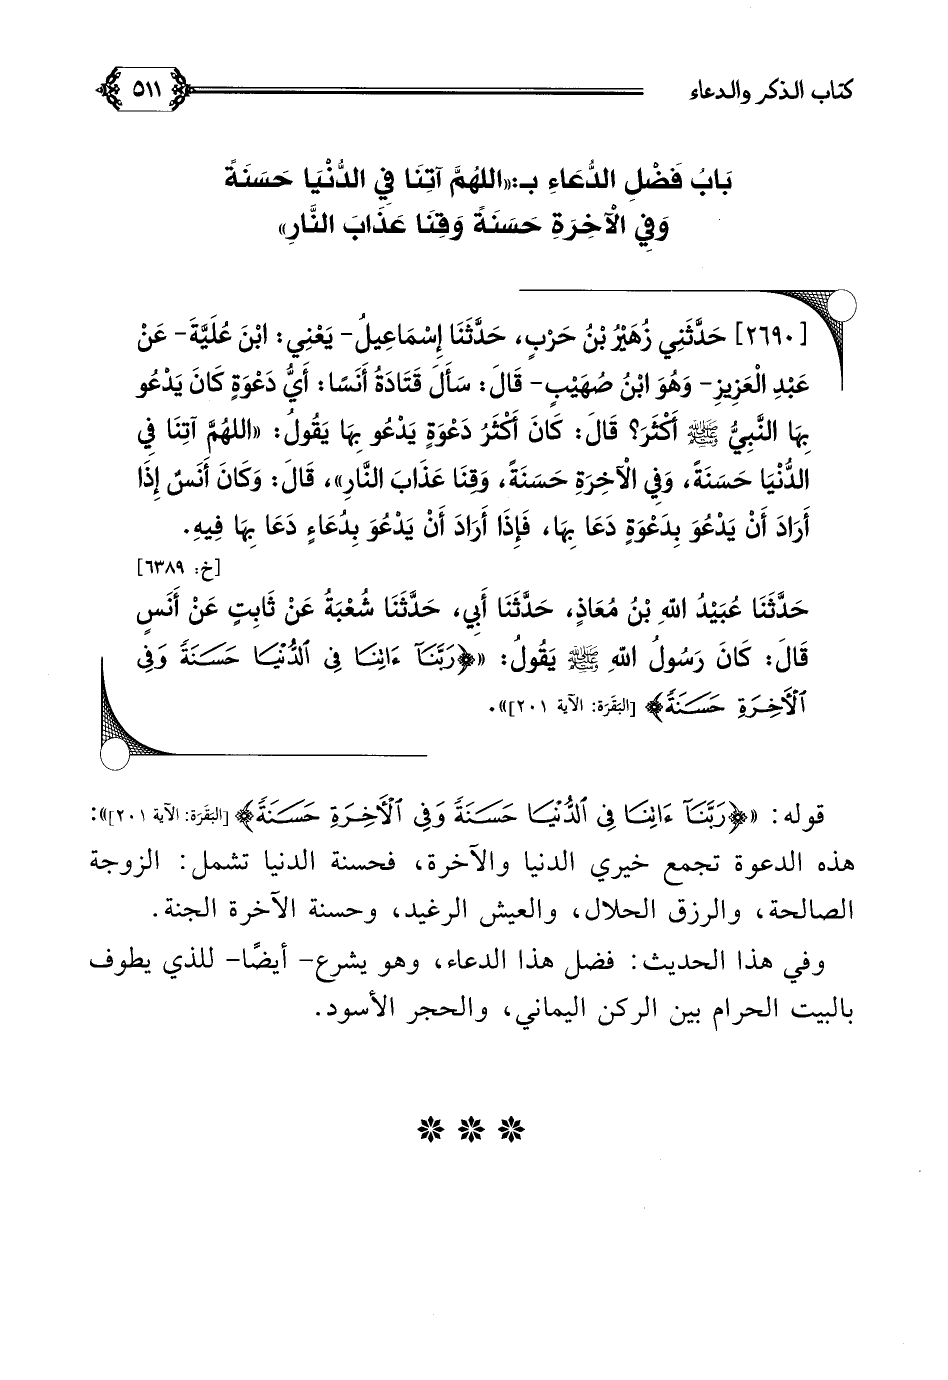 كتاب الذكر والدعاء
٥١١
بَابُ فَضْلِ الدُّعَاءِ بـ: «اللهُمَّ آتِنَا فِي الدُّنْيَا حَسَنَةً
وَفِي الْآخِرَةِ حَسَنَةً وَقِنَا عَذَابَ النَّارِ»
[٢٦٩٠] حَدَّثَنِي زُهَيْرُ بْنُ حَرْبٍ، حَدَّثَنَا إِسْمَاعِيلُ- يَعْنِي: ابْنَ عُلَيَّةَ- عَنْ
عَبْدِ الْعَزِيزِ- وَهُوَ ابْنُ صُهَيْبٍ- قَالَ: سَأَلَ قَتَادَةُ أَنَسًا: أَيُّ دَعْوَةٍ كَانَ يَدْعُو
بِهَا النَّبِيُّ ﷺ أَكْثَرَ؟ قَالَ: كَانَ أَكْثَرُ دَعْوَةٍ يَدْعُو بِهَا يَقُولُ: «اللهُمَّ آتِنَا فِي
الدُّنْيَا حَسَنَةً، وَفِي الْآخِرَةِ حَسَنَةً، وَقِنَا عَذَابَ النَّارِ»، قَالَ: وَكَانَ أَنَسٌ إِذَا
أَرَادَ أَنْ يَدْعُوَ بِدَعْوَةٍ دَعَا بِهَا، فَإِذَا أَرَادَ أَنْ يَدْعُوَ بِدُعَاءٍ دَعَا بِهَا فِيهِ.
[خ: ٦٣٨٩]
حَدَّثَنَا عُبَيْدُ اللهِ بْنُ مُعَاذٍ، حَدَّثَنَا أَبِي، حَدَّثَنَا شُعْبَةُ عَنْ ثَابِتٍ عَنْ أَنَسٍ
قَالَ: كَانَ رَسُولُ اللهِ ﷺ يَقُولُ: «﴿رَبَّنَآ ءَاتِنَا فِى ٱلدُّنْيَا حَسَنَةً وَفِى
ٱلْأَخِرَةِ حَسَنَةً﴾ [البَقَرَة: الآية ٢٠١]».
قوله: «﴿رَبَّنَآ ءَاتِنَا فِى ٱلدُّنْيَا حَسَنَةً وَفِى ٱلْأَخِرَةِ حَسَنَةً﴾ [البَقَرَة: الآية ٢٠١]»:
هذه الدعوة تجمع خيري الدنيا والآخرة، فحسنة الدنيا تشمل: الزوجة
الصالحة، والرزق الحلال، والعيش الرغيد، وحسنة الآخرة الجنة.
وفي هذا الحديث: فضل هذا الدعاء، وهو يشرع- أيضًا- للذي يطوف
بالبيت الحرام بين الركن اليماني، والحجر الأسود.